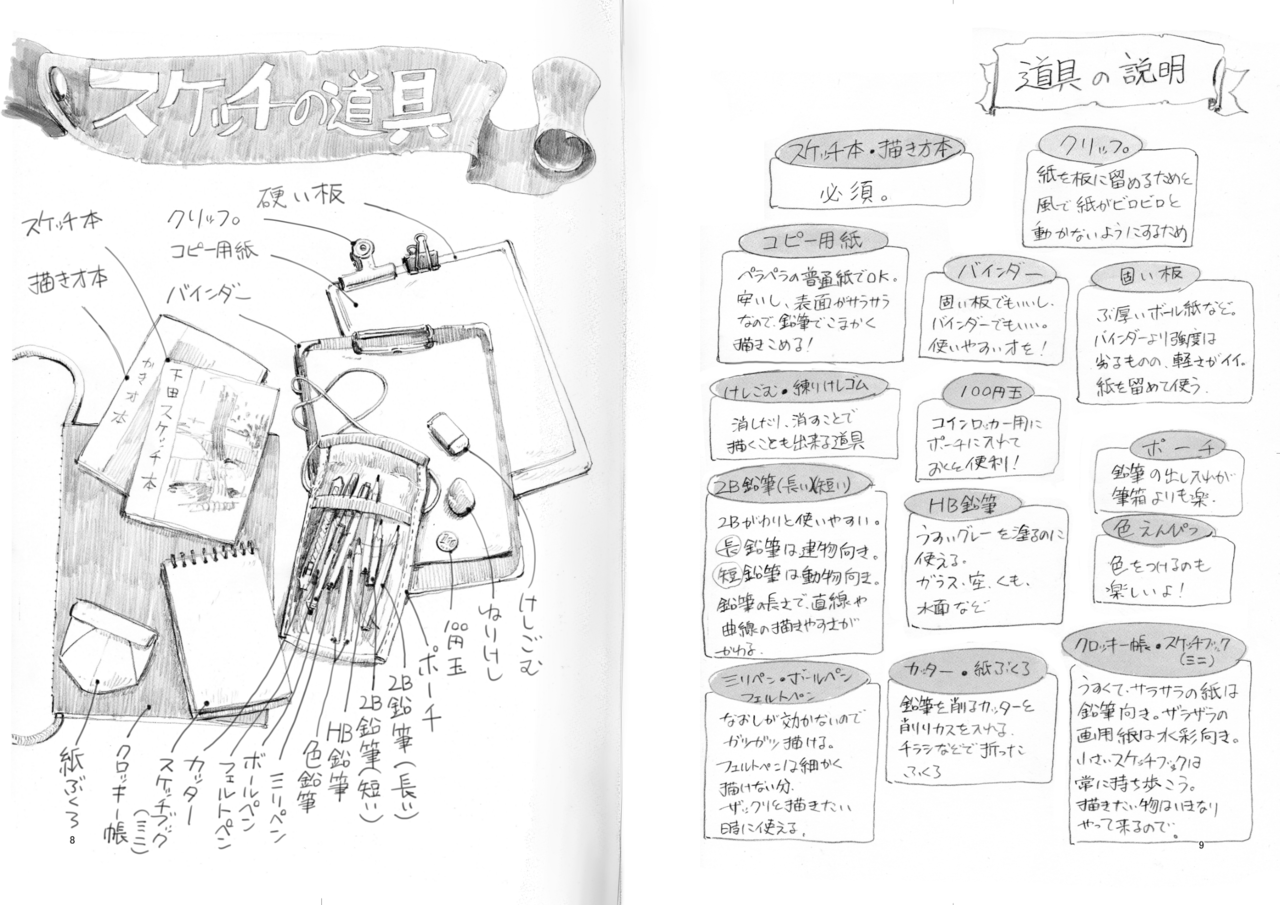 スケッチの道具
硬い板
クリップ。
コピー用紙
バインダー
スケッチ本
描き方本
かき方本
下田スケッチ本
けしごむ
ねりけし
100円玉
ポーチ
2B鉛筆(長い)
2B鉛筆(短い)
HB鉛筆
色鉛筆
ミリペン
ボールペン
フェルトペン
カッター
スケッチブック
(ミニ)
クロッキー帳
紙ぶくろ
8
道具の説明
スケッチ本・描き方本
必須。
クリップ。
紙を板に留めるためと
風で紙がビロビロと
動かないようにするため
コピー用紙
ペラペラの普通紙でOK。
安いし、表面がサラサラ
なので、鉛筆でこまかく
描きこめる!
バインダー
固い板でもいいし、
バインダーでもいい。
使いやすい方を!
固い板
ぶ厚いボール紙など。
バインダーより強度は
劣るものの、軽さがイイ。
紙を留めて使う。
けしごむ・練りけしゴム
消したり、消すことで
描くことも出来る道具
100円玉
コインロッカー用に
ポーチに入れて
おくと便利!
ポーチ
鉛筆の出し入れが
筆箱よりも楽。
2B鉛筆(長い)(短い)
2Bがわりと使いやすい。
長鉛筆は建物向き。
短鉛筆は動物向き。
鉛筆の長さで、直線や
曲線の描きやすさが
かわる。
HB鉛筆
うすいグレーを塗るのに
使える。
ガラス、空、くも、
水面など
色えんぴつ
色をつけるのも
楽しいよ!
ミリペン・ボールペン
フェルトペン
なおしが効かないので
ガツガツ描ける。
フェルトペンは細かく
描けない分、
ザックリと描きたい
時に使える。
カッター・紙ぶくろ
鉛筆を削るカッターと
削りカスを入れる、
チラシなどで折った
ふくろ
クロッキー帳・スケッチブック
(ミニ)
うすくて、サラサラの紙は
鉛筆向き。ザラザラの
画用紙は水彩向き。
小さいスケッチブックは
常に持ち歩こう。
描きたい物はいきなり
やって来るので。
9